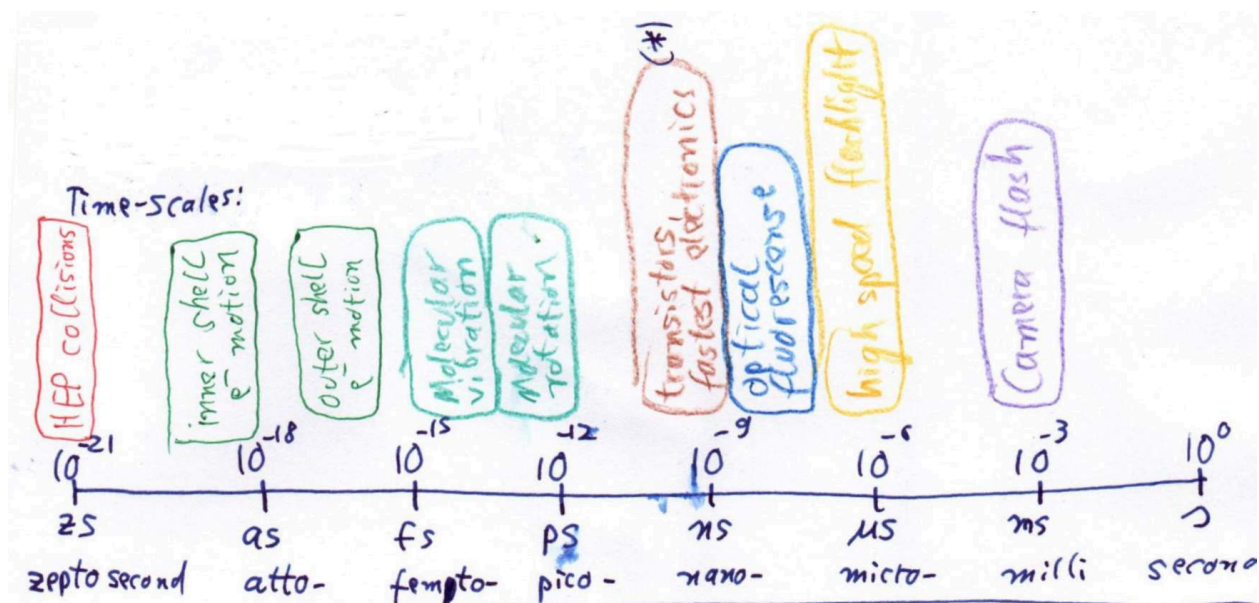 (*)
Time-scales:
HEP collisions
inner shell
e⁻ motion
outer shell
e⁻ motion
Molecular
vibration
Molecular
rotation
transistors
fastest electronics
optical
fluorescense
high speed flachlight
Camera flash
10⁻²¹ 10⁻¹⁸ 10⁻¹⁵ 10⁻¹² 10⁻⁹ 10⁻⁶ 10⁻³ 10⁰
zs as fs ps ns μs ms s
zepto second atto- fempto- pico- nano- micro- milli second